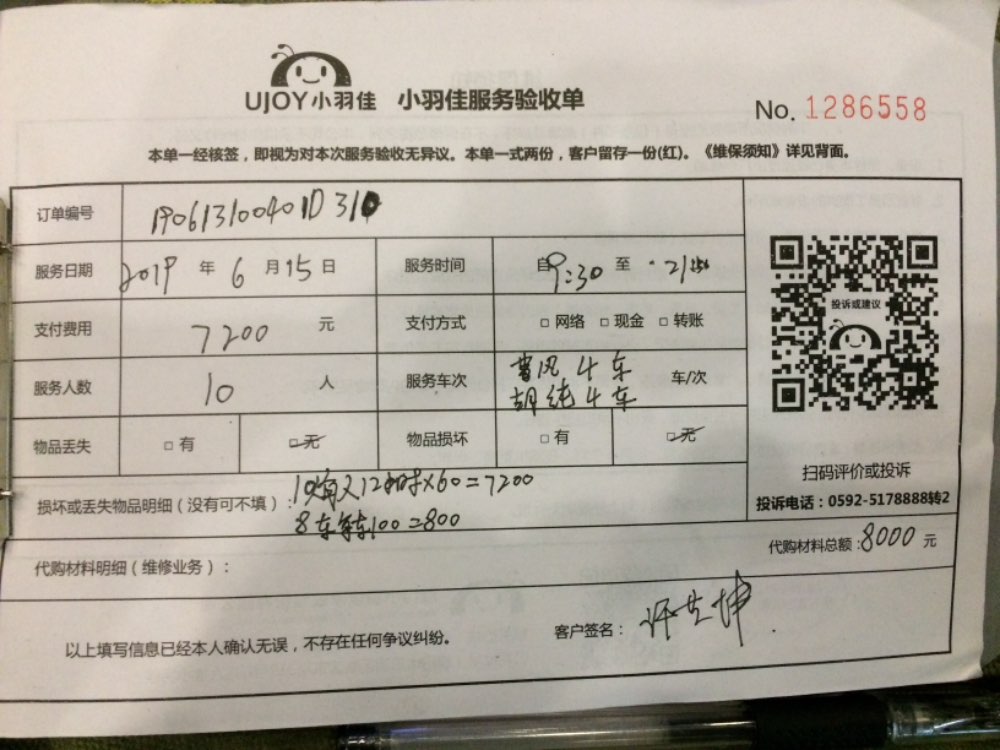 UJOY小羽佳 小羽佳服务验收单
No. 1286558
本单一经核签，即视为对本次服务验收无异议。本单一式两份，客户留存一份(红)。《维保须知》详见背面。
订单编号
服务日期 2019 年 6 月 15 日 服务时间 自 9:30 至
支付费用 7200 元 支付方式 □ 网络 □ 现金 □ 转账
服务人数 10 人 服务车次 曹风 4车 胡纯 4车 车/次
物品丢失 □ 有 □ 无 物品损坏 □ 有 □ 无
投诉或建议
扫码评价或投诉
投诉电话：0592-5178888转2
损坏或丢失物品明细（没有可不填）：
12小时×60=7200
100=800
代购材料总额：8000 元
代购材料明细（维修业务）：
以上填写信息已经本人确认无误，不存在任何争议纠纷。
客户签名：